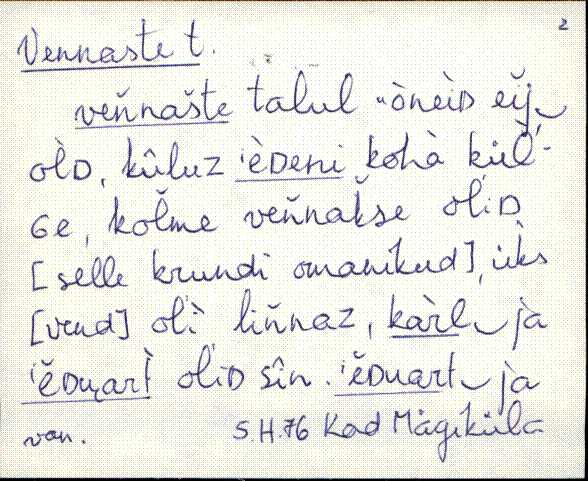 2
Vennaste t.
veňnašte talul òneìD eĭj
olD, kûluz ˈèDeni kohà kül-
Ge, kolme veňnakse oliD
[selle krundi omanikud], üks
[vend] olì liňnaz, kàrl jà
ˈĕDu̯art̀ oliD sîn. ˈĕDuart ja
van. S.H.76 Kad Mägiküla